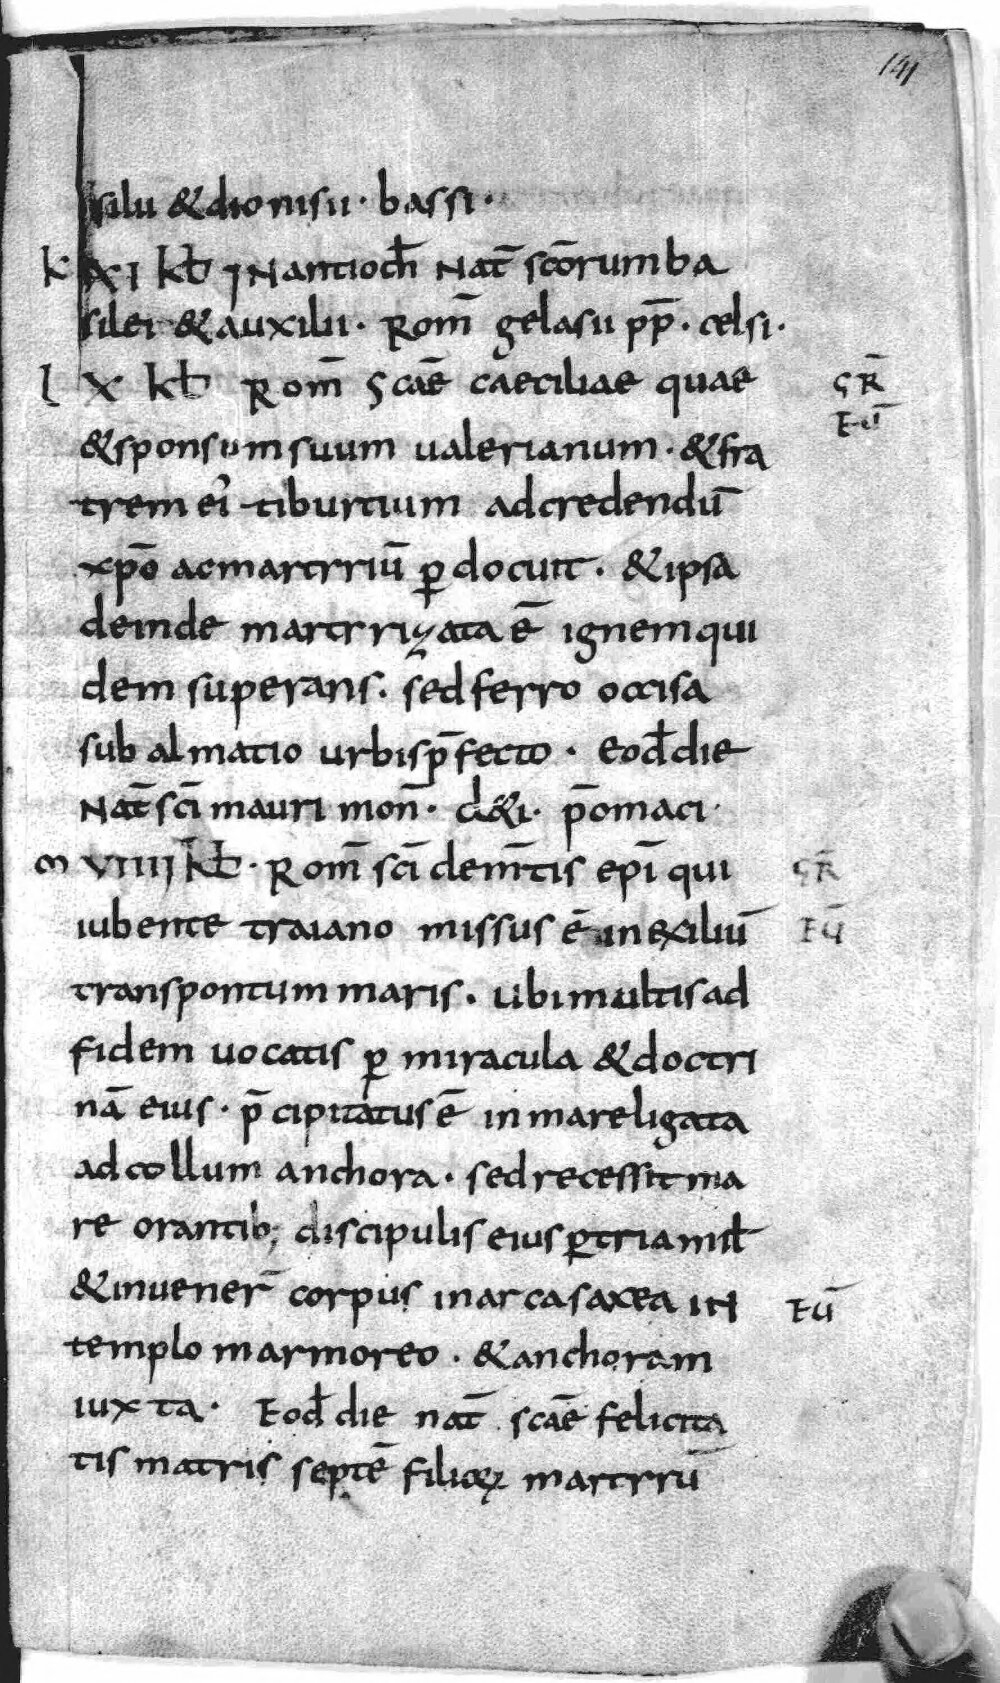 141
silii & dionisii · bassi ·
k XI kƚ IN antioch̄ Nat̄ sc̄orum ba
silei & auxilii · Rom̄ gelasii pp̄ · celsi ·
l X kƚ Rom̄ Scāe caeciliae quae
GR̄
EŪ
& sponsum suum ualerianum · & fra
trem ei' tiburtium ad credendū
xp̄o ac martyriū ꝑdocuit · & ipsa
deinde martyrizata ē ignem qui
dem superans · sed ferro occisa
sub almatio urbis p̄fecto · Eod̄ die
Nat̄ sc̄i mauri mon̄ · d&i · p̄omaci ·
m VIIII kƚ · Rom̄ sc̄i clem̄tis epī qui
GR̄
iubente traiano missus ē in exiliū
EŪ
trans pontum maris · ubi multis ad
fidem uocatis ꝑ miracula & doctri
nā eius · p̄cipitatus ē in mare ligata
ad collum anchora · sed recessit ma
re orantib; discipulis eius ꝑ tria mil̄
& inuener̄ corpus in arca saxea in
EŪ
templo marmoreo · & anchoram
iuxta · Eod̄ die nat̄ scāe felicita
tis matris septē filioꝝ martyrū